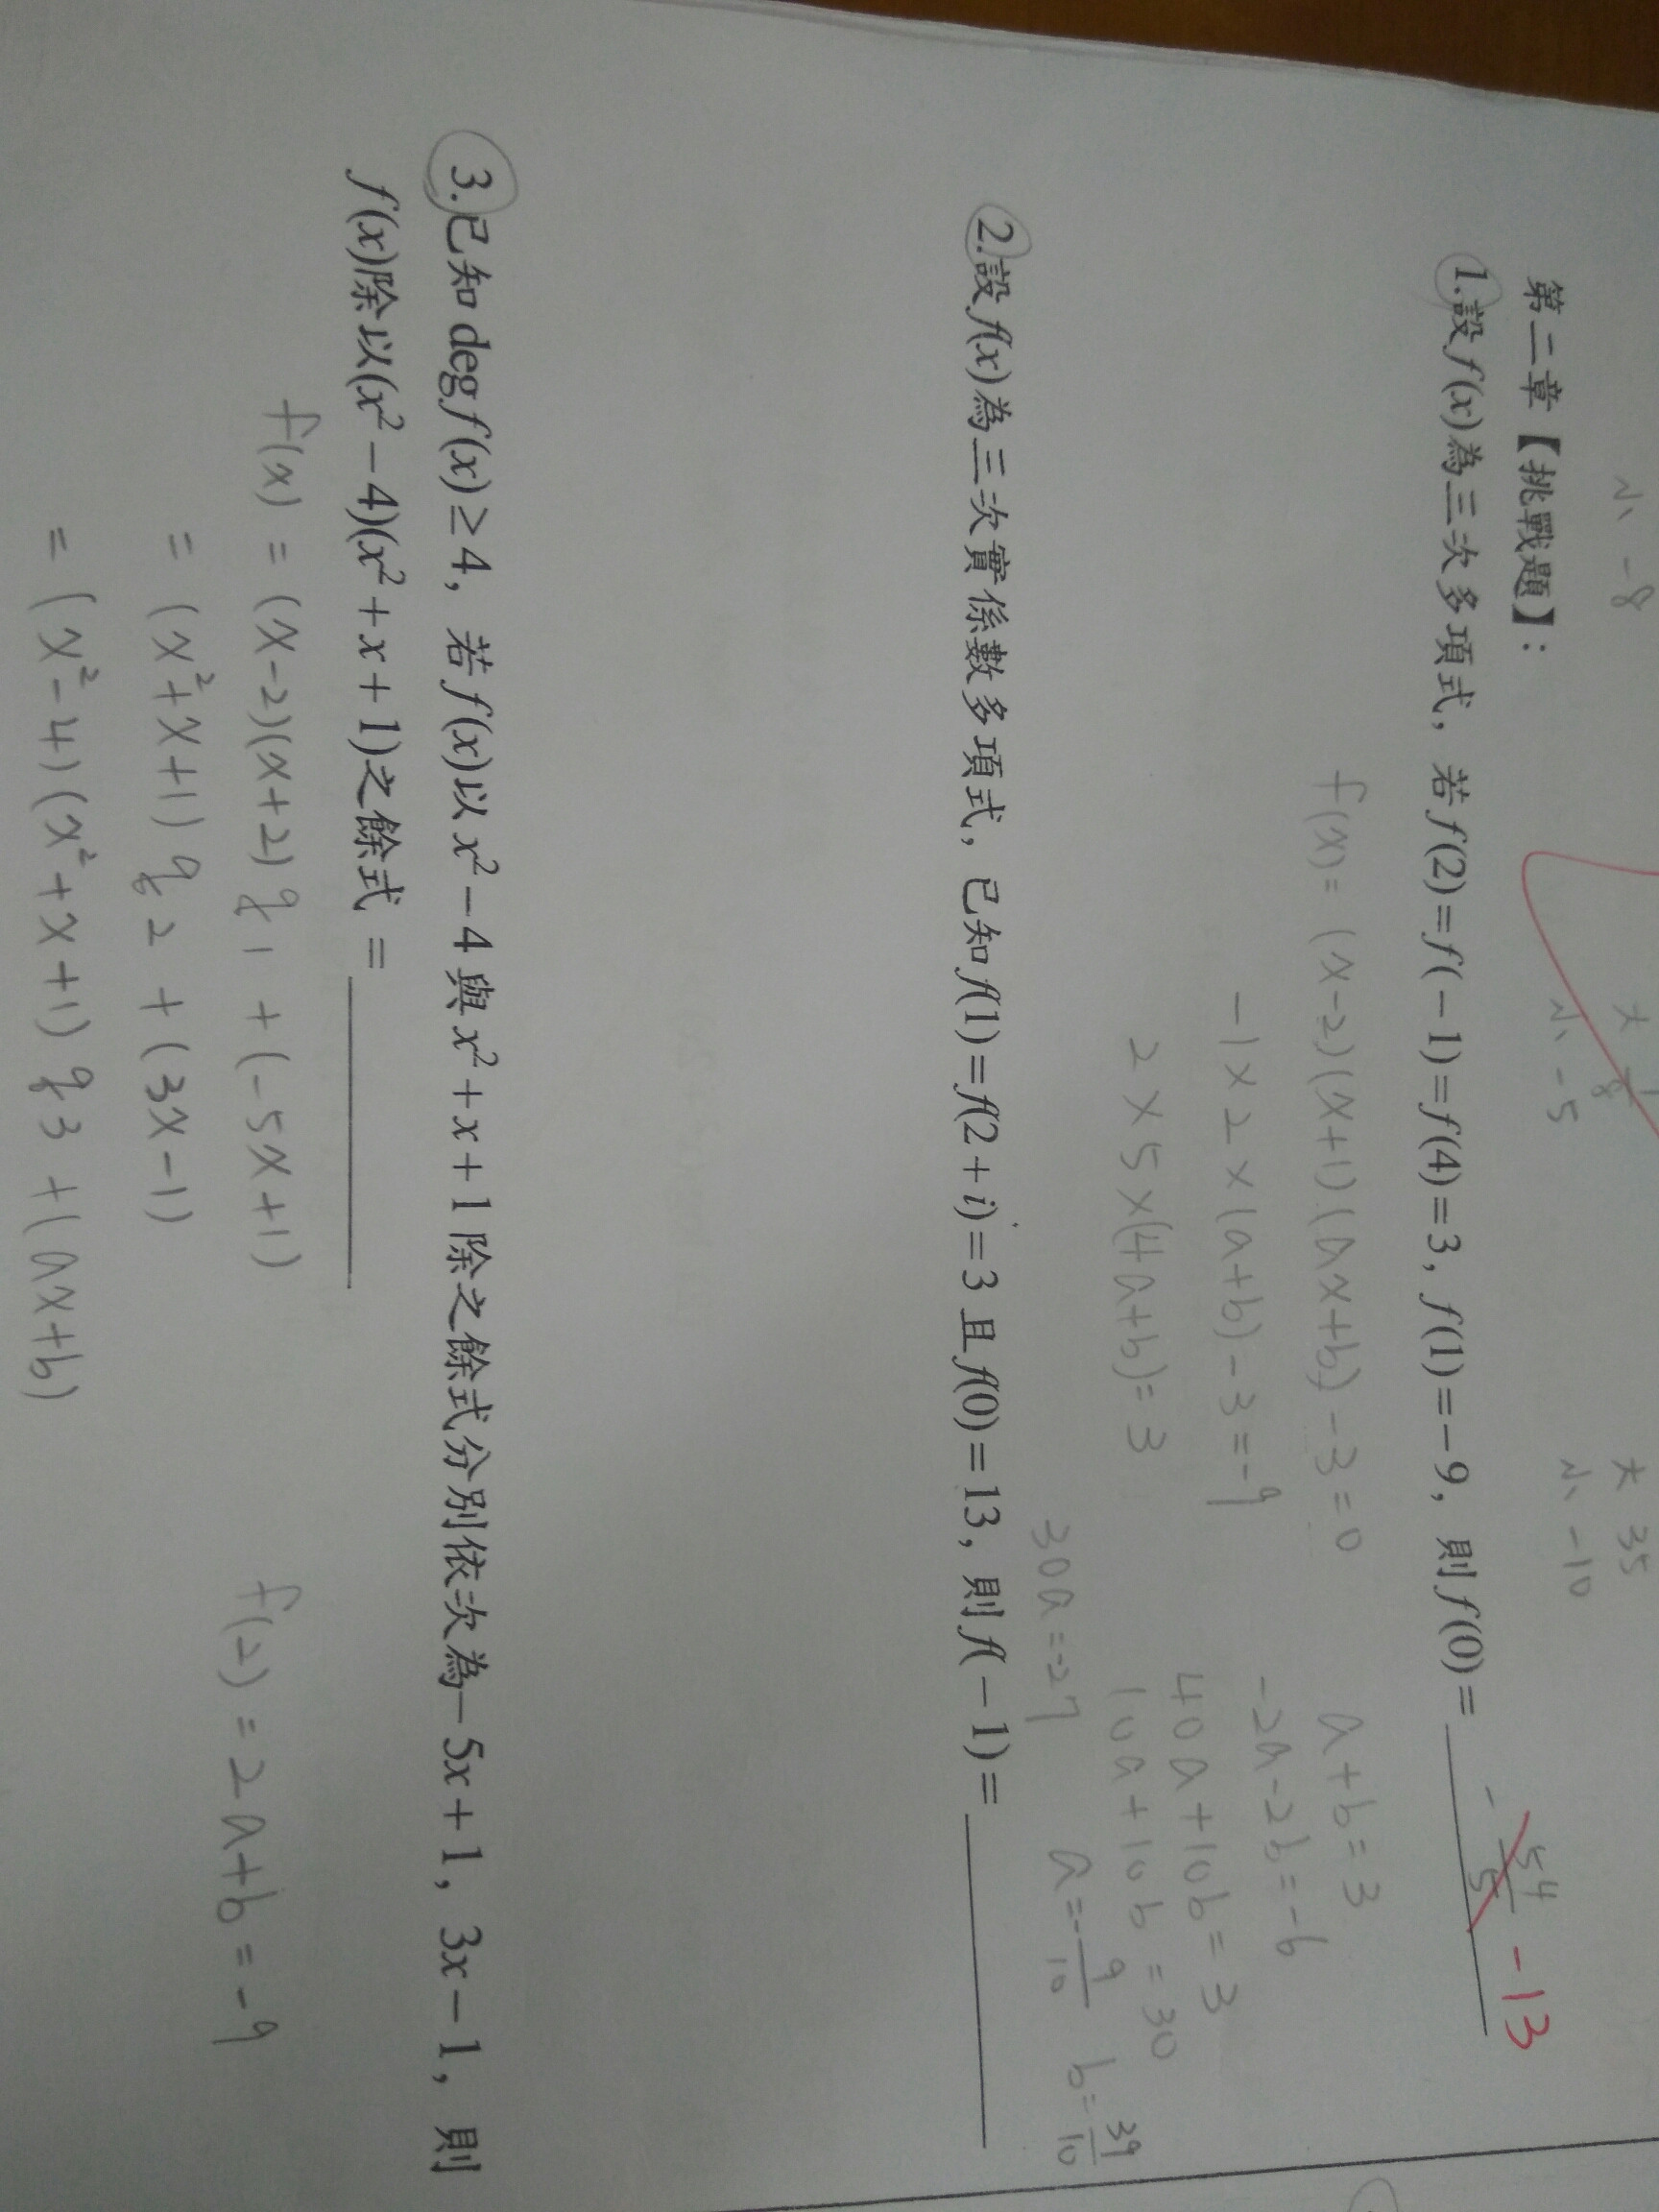 小 -8
大 1/8
小 -5
大 35
小 -10
第二章【挑戰題】:
1.設f(x)為三次多項式，若f(2)=f(-1)=f(4)=3, f(1)=-9，則f(0)=
-54/5 -13
f(x)=(x-2)(x+1)(ax+b)-3=0
-1×2×(a+b)-3=-9
2×5×(4a+b)=3
a+b=3
-2a-2b=-6
40a+10b=3
10a+10b=30
30a=-27
a=-9/10 b=39/10
2.設f(x)為三次實係數多項式，已知f(1)=f(2+i)=3且f(0)=13，則f(-1)=
3.已知deg f(x)≥4，若f(x)以x²-4與x²+x+1除之餘式分別依次為-5x+1, 3x-1，則
f(x)除以(x²-4)(x²+x+1)之餘式=
f(x)=(x-2)(x+2)q1+(-5x+1)
=(x²+x+1)q2+(3x-1)
=(x²-4)(x²+x+1)q3+(ax+b)
f(2)=2a+b=-9